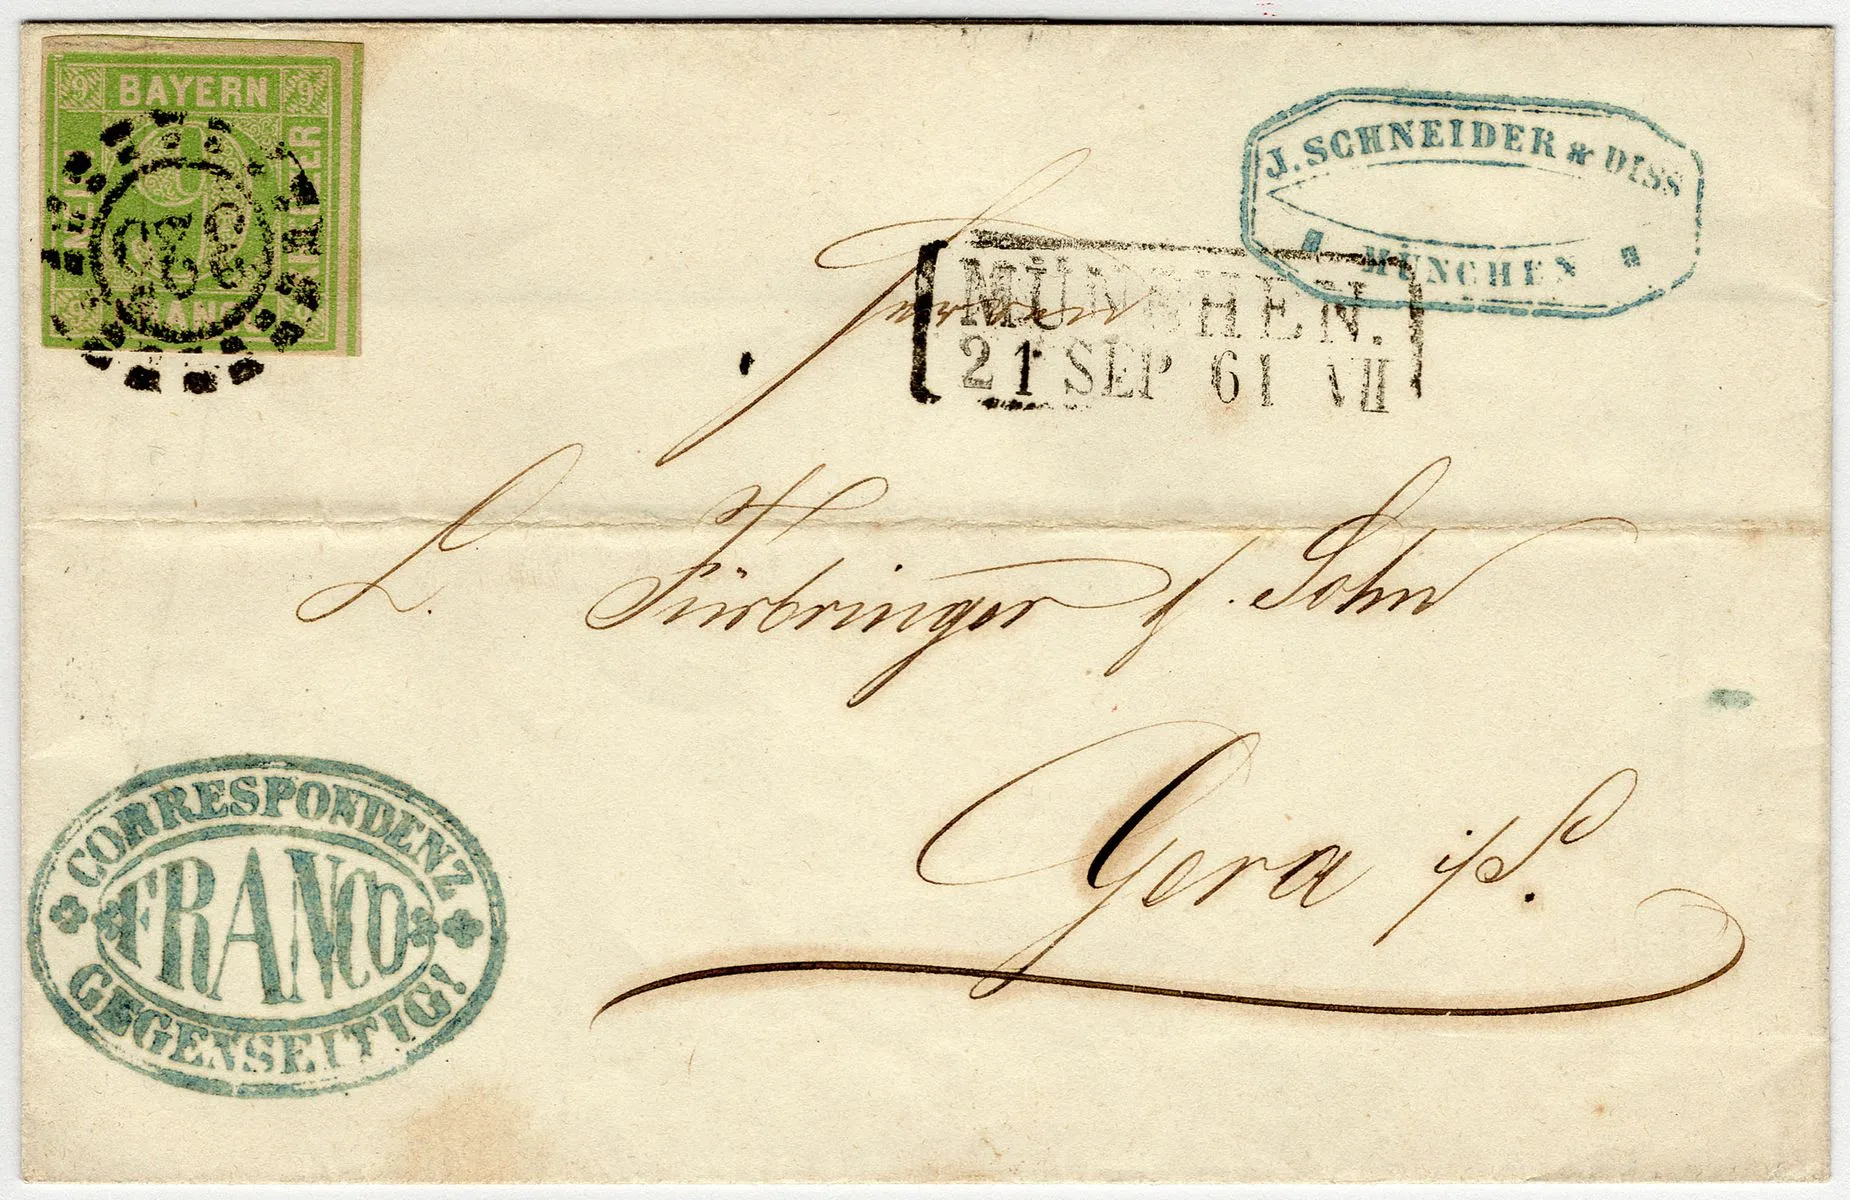 9 BAYERN 9
NEUN KREUZER
9
325
FRANCO
J. SCHNEIDER & DISS
MÜNCHEN
MÜNCHEN.
21 SEP 61 VII
L. Fürbringer s. Sohn
Gera i/S.
CORRESPONDENZ
FRANCO
GEGENSEITIG!